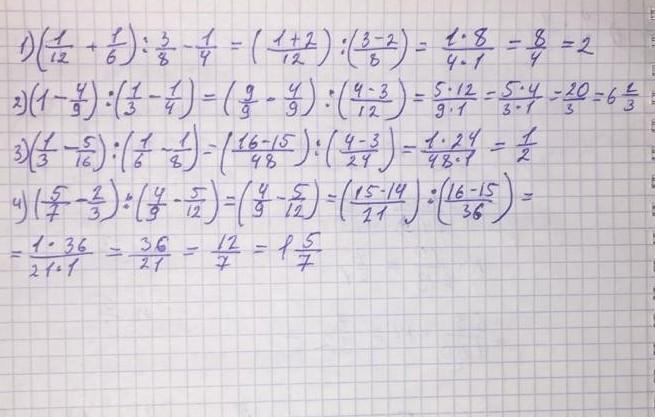 1) (1/12 + 1/6) : 3/8 - 1/4 = (1+2/12) : (3-2/8) = 1·8/4·1 = 8/4 = 2
2) (1 - 4/9) : (1/3 - 1/4) = (9/9 - 4/9) : (4-3/12) = 5·12/9·1 = 5·4/3·1 = 20/3 = 6 2/3
3) (1/3 - 5/16) : (1/6 - 1/8) = (16-15/48) : (4-3/24) = 1·24/48·1 = 1/2
4) (5/7 - 2/3) : (4/9 - 5/12) = (4/9 - 5/12) = (15-14/21) : (16-15/36) =
= 1·36/21·1 = 36/21 = 12/7 = 1 5/7